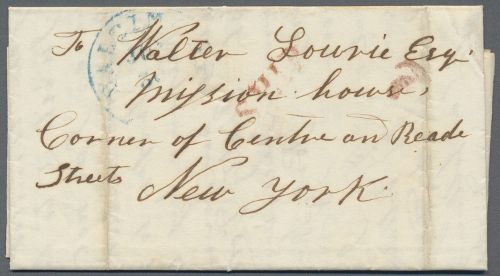 To Walter Lowrie Esqr
Mission house,
Corner of Centre and Reade
Streets
New York.